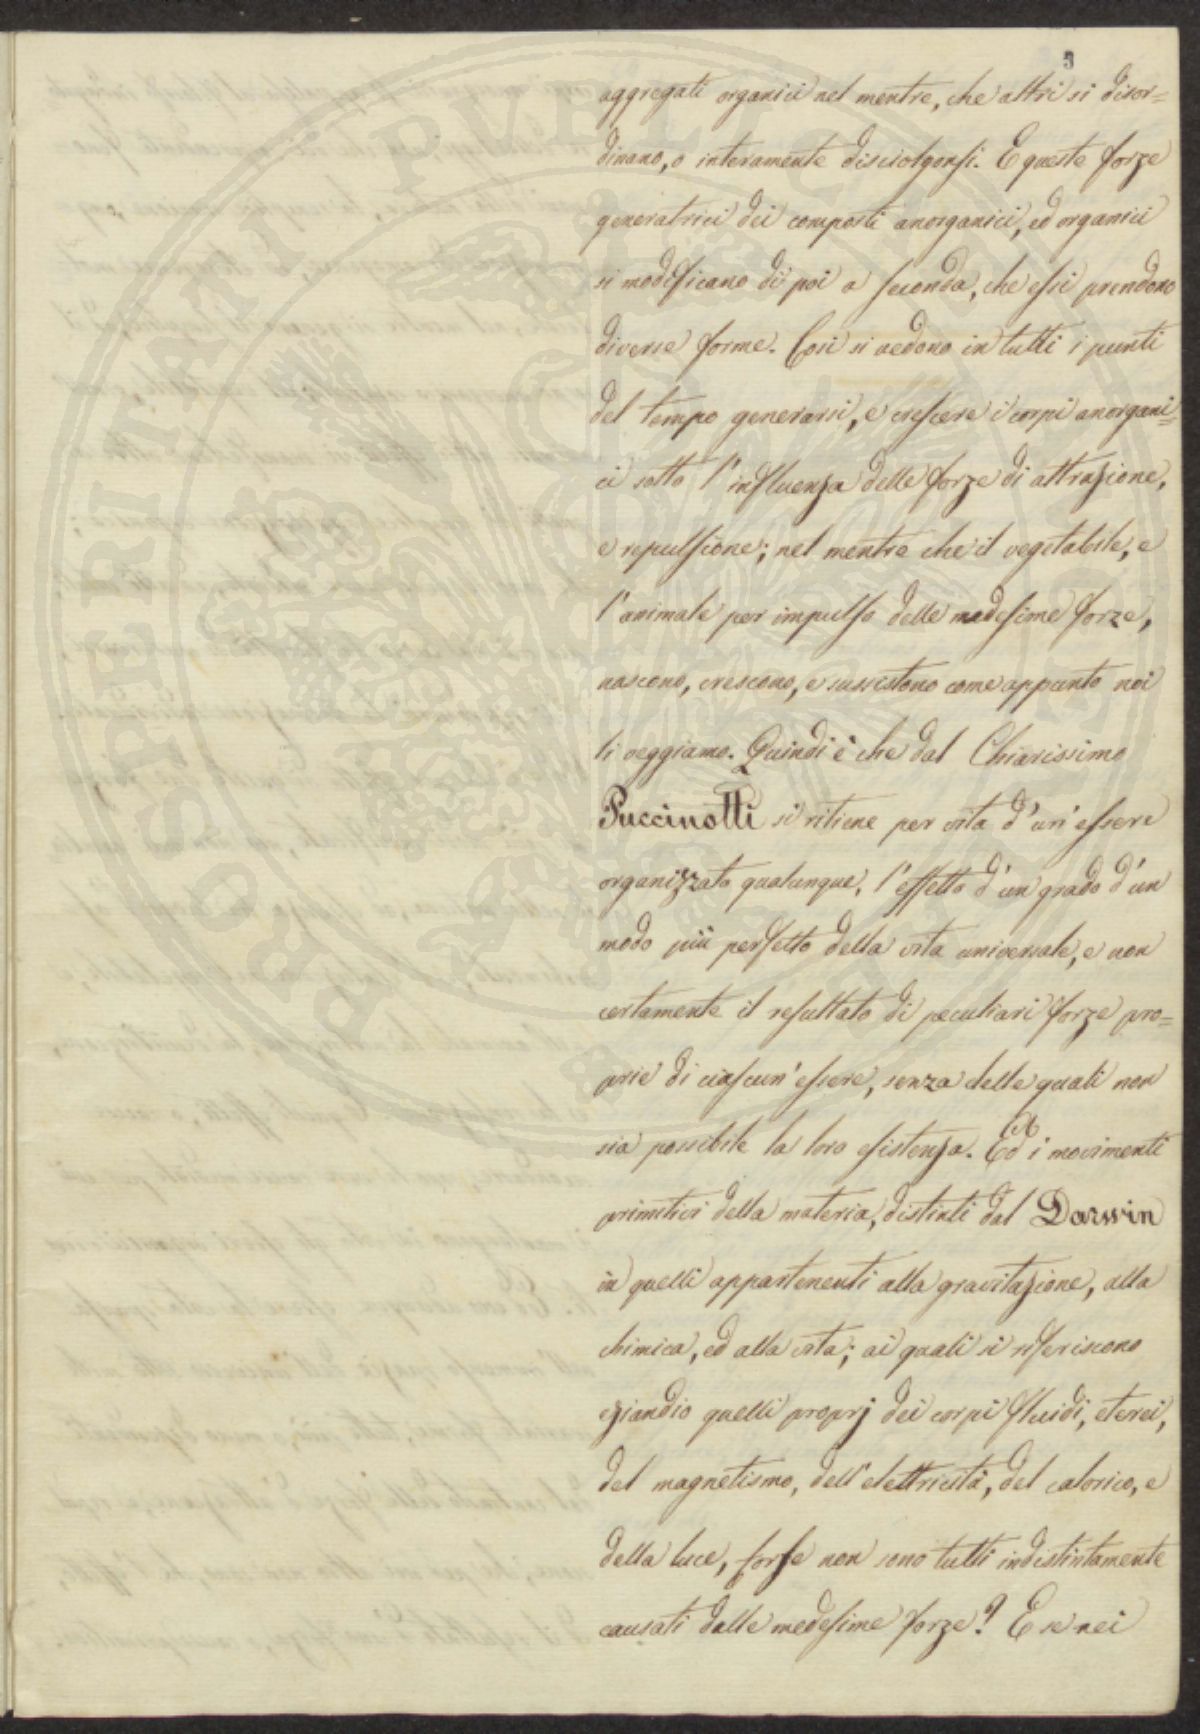 3
aggregati organici nel mentre, che altri si disor=
dinano, o interamente disciolgonsi. E queste forze
generatrici dei composti anorganici, ed organici
si modificano di poi a seconda, che essi prendono
diverse forme. Così si vedono in tutti i punti
del tempo generarsi, e crescere i corpi anorgani=
ci sotto l'influenza delle forze di attrazione,
e repulsione; nel mentre che il vegetabile, e
l'animale per impulso delle medesime forze,
nascono, crescono, e sussistono come appunto noi
li veggiamo. Quindi è che dal Chiarissimo
Puccinotti si ritiene per vita d'un'essere
organizzato qualunque, l'effetto d'un grado d'un
modo più perfetto della vita universale, e non
certamente il resultato di peculiari forze pro=
prie di ciascun'essere, senza delle quali non
sia possibile la loro esistenza. Ed i movimenti
primitivi della materia, distinti dal Darwin
in quelli appartenenti alla gravitazione, alla
chimica, ed alla vita; ai quali si riferiscono
eziandio quelli proprj dei corpi fluidi, eterei,
del magnetismo, dell'elettricità, del calorico, e
della luce, forse non sono tutti indistintamente
causati dalle medesime forze? E se nei
PROSPERITATI PUBLICAE